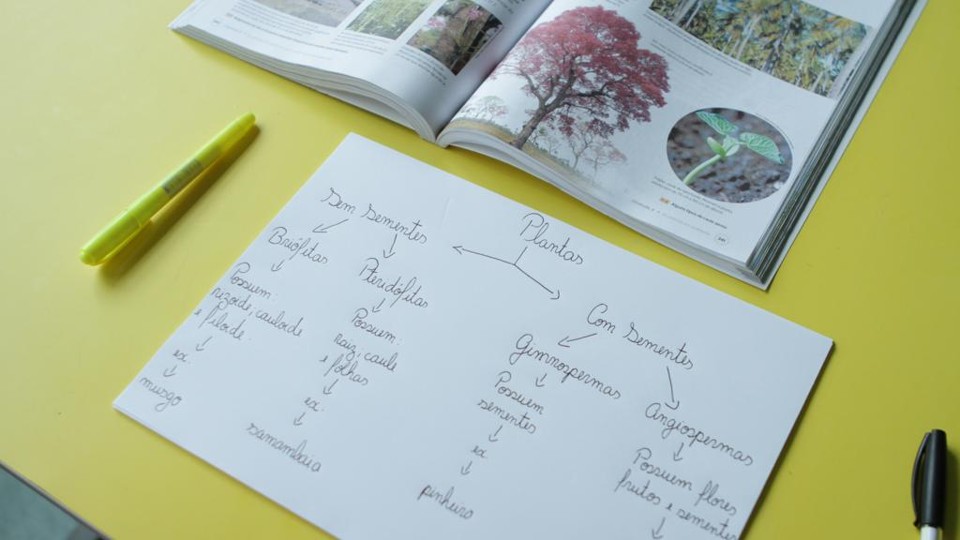 Plantas
Sem Sementes
Briófitas
Possuem
rizoide, cauloide
e filoide.
ex
musgo
Pteridófitas
Possuem:
raiz, caule
e folhas
ex.
samambaia
Com Sementes
Gimnospermas
Possuem
sementes
ex
pinheiro
Angiospermas
Possuem flores
frutos e sementes